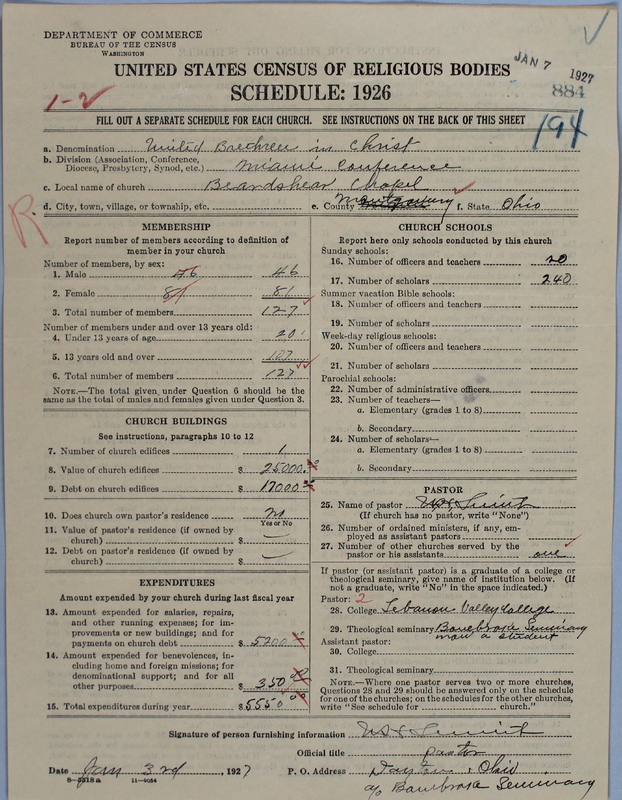 DEPARTMENT OF COMMERCE
BUREAU OF THE CENSUS
WASHINGTON
JAN 7 1927
UNITED STATES CENSUS OF RELIGIOUS BODIES
884
1-2
SCHEDULE: 1926
FILL OUT A SEPARATE SCHEDULE FOR EACH CHURCH. SEE INSTRUCTIONS ON THE BACK OF THIS SHEET
194
a. Denomination United Brethren in Christ
b. Division (Association, Conference, Diocese, Presbytery, Synod, etc.) Miami Conference
c. Local name of church Beardshear Chapel
d. City, town, village, or township, etc. e. County Montgomery f. State Ohio
R
MEMBERSHIP
Report number of members according to definition of
member in your church
Number of members, by sex:
1. Male 46 46
2. Female 81 81
3. Total number of members 127
Number of members under and over 13 years old:
4. Under 13 years of age 20
5. 13 years old and over 107
6. Total number of members 127
NOTE.—The total given under Question 6 should be the
same as the total of males and females given under Question 3.
CHURCH BUILDINGS
See instructions, paragraphs 10 to 12
7. Number of church edifices 1
8. Value of church edifices $ 25000.00
9. Debt on church edifices $ 17000.00
10. Does church own pastor's residence no
Yes or No
11. Value of pastor's residence (if owned by
church) $ —
12. Debt on pastor's residence (if owned by
church) $ —
EXPENDITURES
Amount expended by your church during last fiscal year
13. Amount expended for salaries, repairs,
and other running expenses; for im-
provements or new buildings; and for
payments on church debt $ 5200
14. Amount expended for benevolences, in-
cluding home and foreign missions; for
denominational support; and for all
other purposes $ 350.00
15. Total expenditures during year $ 5550.00
CHURCH SCHOOLS
Report here only schools conducted by this church
Sunday schools:
16. Number of officers and teachers 20
17. Number of scholars 240
Summer vacation Bible schools:
18. Number of officers and teachers
19. Number of scholars
Week-day religious schools:
20. Number of officers and teachers
21. Number of scholars
Parochial schools:
22. Number of administrative officers
23. Number of teachers—
a. Elementary (grades 1 to 8)
b. Secondary
24. Number of scholars—
a. Elementary (grades 1 to 8)
b. Secondary
PASTOR
25. Name of pastor
(If church has no pastor, write "None")
26. Number of ordained ministers, if any, em-
ployed as assistant pastors
27. Number of other churches served by the
pastor or his assistants one
If pastor (or assistant pastor) is a graduate of a college or
theological seminary, give name of institution below. (If
not a graduate, write "No" in the space indicated.)
Pastor: 2
28. College Lebanon Valley College
29. Theological seminary Bonebrake Seminary
now a student
Assistant pastor:
30. College
31. Theological seminary
NOTE.—Where one pastor serves two or more churches,
Questions 28 and 29 should be answered only on the schedule
for one of the churches; on the schedules for the other churches,
write "See schedule for church."
Signature of person furnishing information
Official title pastor
Date Jan 3rd, 1927 P. O. Address Dayton, Ohio
8—5318a 11—9084
c/o Bonebrake Seminary